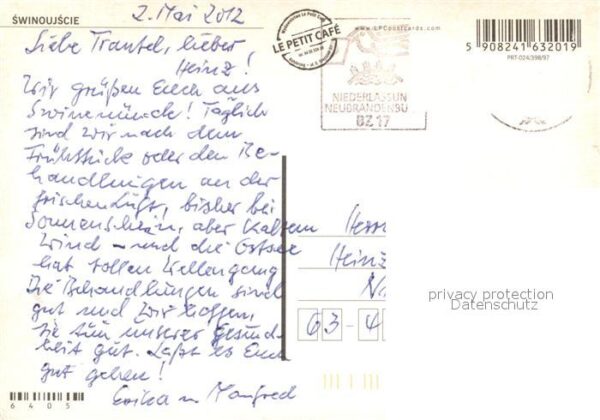 ŚWINOUJŚCIE
2. Mai 2012
Liebe Trautel, lieber
Heinz!
Wir grüßen Euch aus
Swinemünde! Täglich
sind wir nach dem
Frühstück oder den Be-
handlungen an der
frischen Luft, bisher bei
Sonnenschein, aber kaltem
Wind – und die Ostsee
hat tollen Wellengang
Die Behandlungen sind
gut und wir hoffen,
sie tun unserer Gesund-
heit gut. Laßt es Euch
gut gehen!
Erika u. Manfred
LE PETIT CAFÉ
www.EPCpostcards.com
NIEDERLASSUN
NEUBRANDENBU
BZ 17
5 908241 632019
PRT-024/398/97
Herrn
Heinz
privacy protection
Datenschutz
63-4
6405